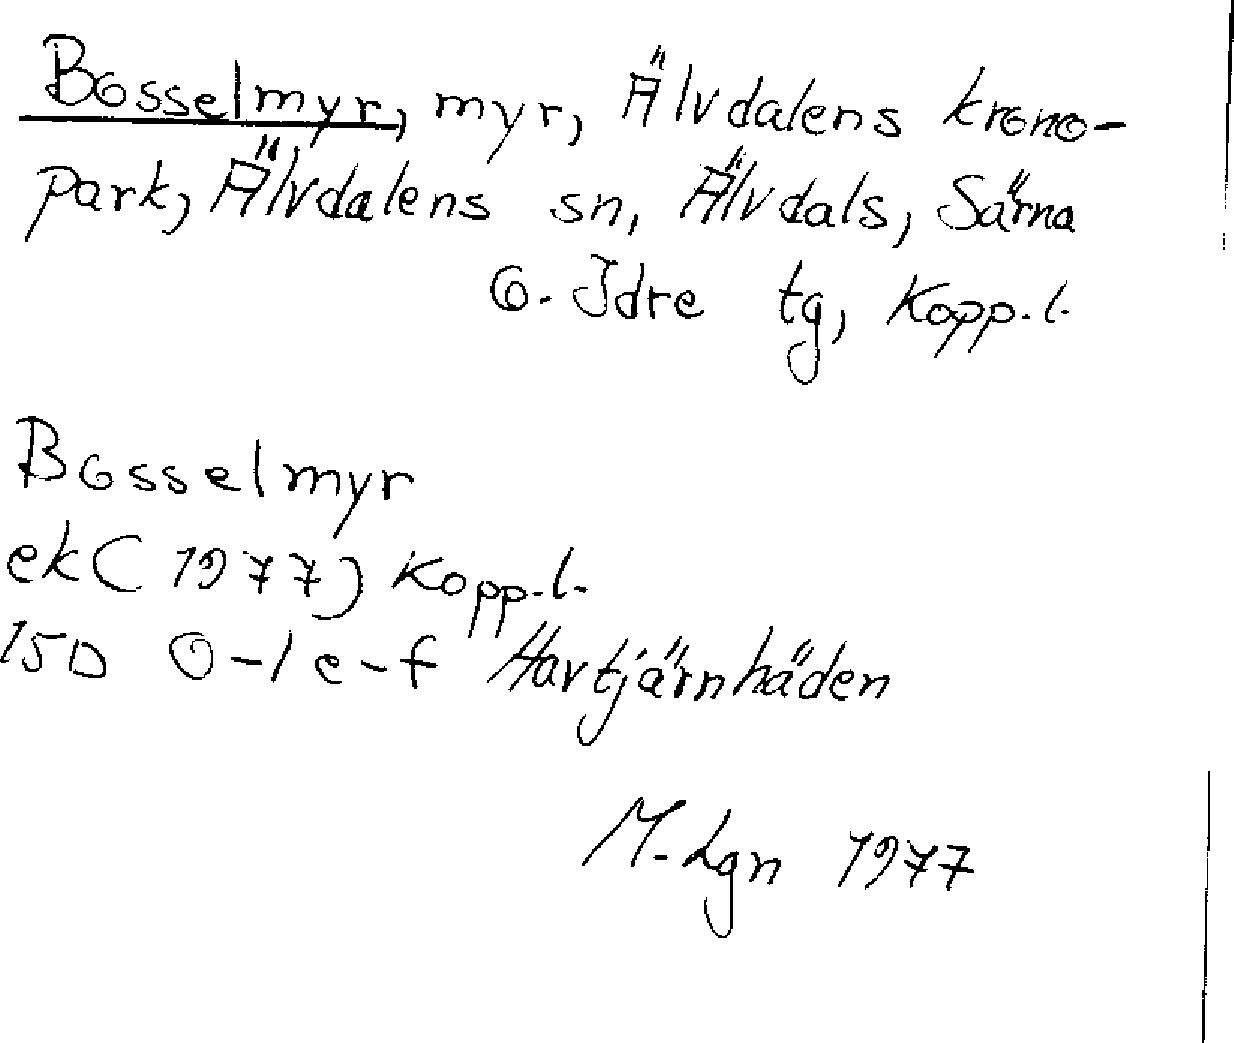 Bosselmyr, myr, Älvdalens krono-
park, Älvdalens sn, Älvdals, Särna
o. Idre tg, Kopp. l.
Bosselmyr
ek (1977) Kopp. l.
15D 0-1 e-f Hartjärnhäden
M. Lgn 1977